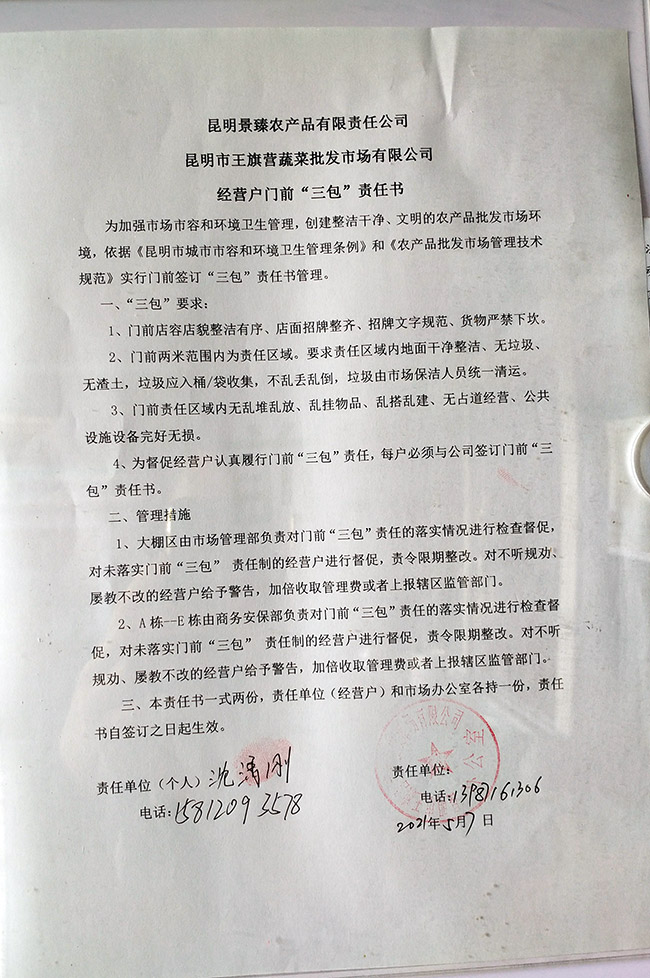 昆明景臻农产品有限责任公司
昆明市王旗营蔬菜批发市场有限公司
经营户门前“三包”责任书
为加强市场市容和环境卫生管理，创建整洁干净、文明的农产品批发市场环
境，依据《昆明市城市市容和环境卫生管理条例》和《农产品批发市场管理技术
规范》实行门前签订“三包”责任书管理。
一、“三包”要求：
1、门前店容店貌整洁有序、店面招牌整齐、招牌文字规范、货物严禁下坎。
2、门前两米范围内为责任区域。要求责任区域内地面干净整洁、无垃圾、
无渣土，垃圾应入桶/袋收集，不乱丢乱倒，垃圾由市场保洁人员统一清运。
3、门前责任区域内无乱堆乱放、乱挂物品、乱搭乱建、无占道经营、公共
设施设备完好无损。
4、为督促经营户认真履行门前“三包”责任，每户必须与公司签订门前“三
包”责任书。
二、管理措施
1、大棚区由市场管理部负责对门前“三包”责任的落实情况进行检查督促，
对未落实门前“三包” 责任制的经营户进行督促，责令限期整改。对不听规劝、
屡教不改的经营户给予警告，加倍收取管理费或者上报辖区监管部门。
2、A栋--E栋由商务安保部负责对门前“三包”责任的落实情况进行检查督
促，对未落实门前“三包” 责任制的经营户进行督促，责令限期整改。对不听
规劝、屡教不改的经营户给予警告，加倍收取管理费或者上报辖区监管部门。
三、本责任书一式两份，责任单位（经营户）和市场办公室各持一份，责任
书自签订之日起生效。
责任单位（个人）沈 刚
电话:15812093578
责任单位：
电话:13987161306
2021年5月7日
有限公司
办公室